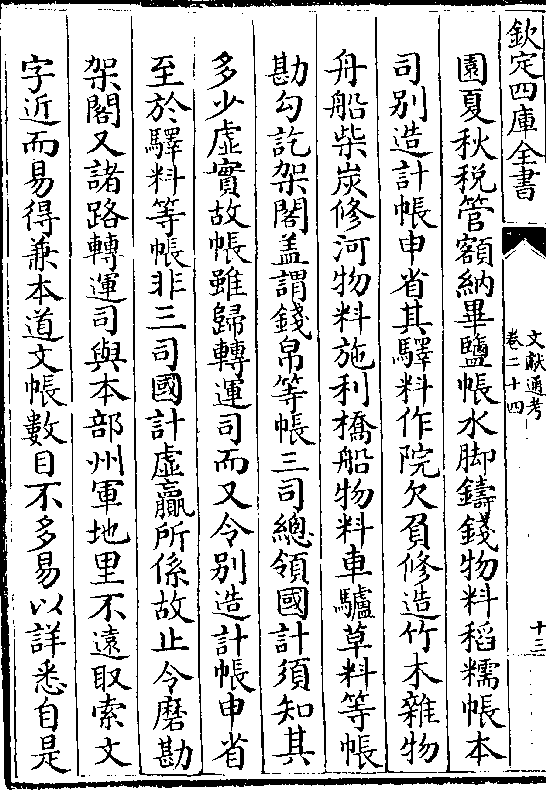 欽定四庫全書
文獻通考
卷二十四
十三
園夏秋税管額納畢鹽帳水脚鑄錢物料稻糯帳本
司别造計帳申省其驛料作院欠負修造竹木雜物
舟船柴炭修河物料施利橋船物料車驢草料等帳
勘勾訖架閣盖謂錢帛等帳三司總領國計須知其
多少虚實故帳雖歸轉運司而又令别造計帳申省
至於驛料等帳非三司國計虚贏所係故止令磨勘
架閣又諸路轉運司與本部州軍地里不遠取索文
字近而易得兼本道文帳數目不多易以詳悉自是